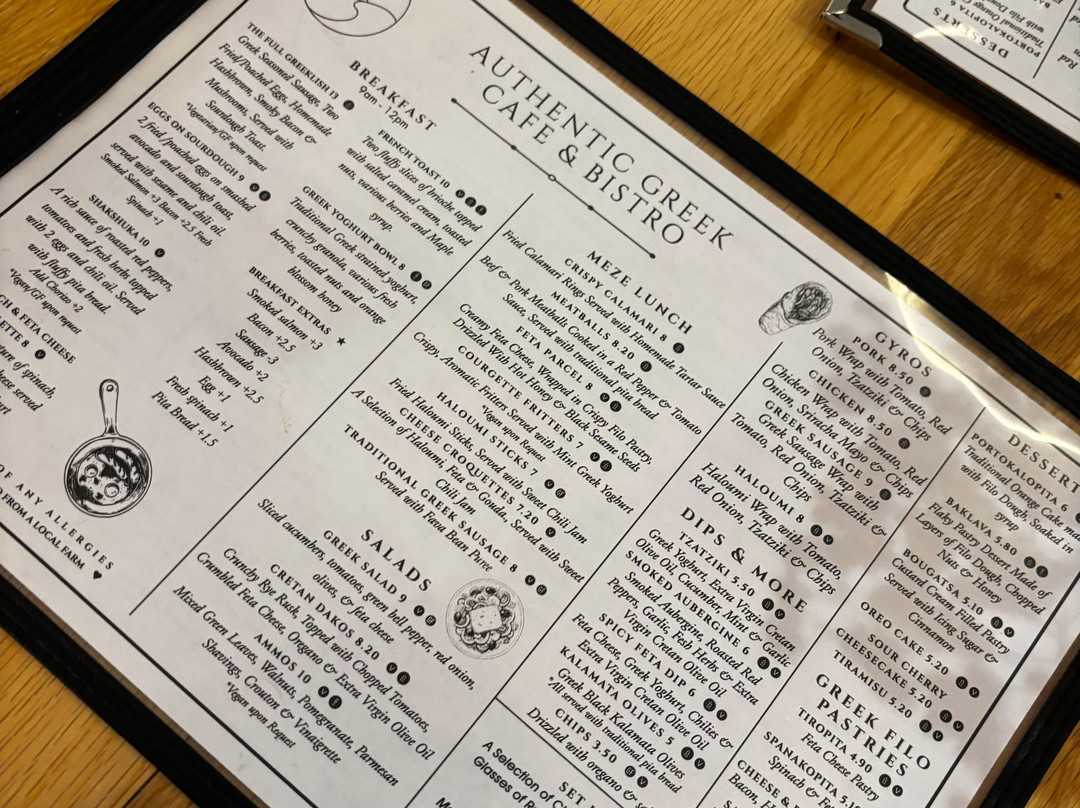 AUTHENTIC GREEK
CAFE & BISTRO
BREAKFAST
9am - 12pm
THE FULL GREEKLISH 13
Greek Seasoned Sausage, Two
Fried/Poached Eggs, Homemade
Hashbrown, Smoky Bacon &
Mushrooms, Served with
Sourdough Toast.
*Vegetarian/GF upon request
EGGS ON SOURDOUGH 9
2 fried /poached eggs on smashed
avocado and sourdough toast,
served with sesame and chili oil.
Smoked Salmon +3 Bacon +2.5 Fresh
Spinach +1
SHAKSHUKA 10
A rich sauce of roasted red peppers,
tomatoes and fresh herbs topped
with 2 eggs and chili oil. Served
with fluffy pita bread.
Add Chorizo +2
*Vegan/GF upon request
CH & FETA CHEESE
LETTE 8
ture of spinach,
eese served
FRENCH TOAST 10
Two fluffy slices of brioche topped
with salted caramel cream, toasted
nuts, various berries and Maple
syrup.
GREEK YOGHURT BOWL 8
Traditional Greek strained yoghurt,
crunchy granola, various fresh
berries, toasted nuts and orange
blossom honey
BREAKFAST EXTRAS
Smoked salmon +3
Bacon +2.5
Sausage +3
Avocado +2
Hashbrown +2.5
Egg +1
Fresh spinach +1
Pita Bread +1.5
OF ANY ALLERGIES
D FROM A LOCAL FARM
MEZE LUNCH
CRISPY CALAMARI 8
Fried Calamari Rings Served with Homemade Tartar Sauce
MEATBALLS 8.20
Beef & Pork Meatballs Cooked in a Red Pepper & Tomato
Sauce, Served with traditional pita bread
FETA PARCEL 8
Creamy Feta Cheese, Wrapped in Crispy Filo Pastry,
Drizzled With Hot Honey & Black Sesame Seeds
COURGETTE FRITERS 7
Crispy Aromatic Fritters Served with Mint Greek Yoghurt
*Vegan upon Request
HALOUMI STICKS 7
Fried Haloumi Sticks, Served with Sweet Chili Jam
CHEESE CROQUETTES 7.20
A Selection of Haloumi, Feta & Gouda, Served with Sweet
Chili Jam
TRADITIONAL GREEK SAUSAGE 8
Served with Fava Bean Puree
SALADS
GREEK SALAD 9
Sliced cucumbers, tomatoes, green bell pepper, red onion,
olives, & feta cheese
CRETAN DAKOS 8.20
Crunchy Rye Rusk, Topped with Chopped Tomatoes,
Crumbled Feta Cheese, Oregano & Extra Virgin Olive Oil
AMMOS 10
Mixed Green Leaves, Walnuts, Pomegranate, Parmesan
Shavings, Crouton & Vinaigrette
*Vegan upon Request
GYROS
PORK 8.50
Pork Wrap with Tomato, Red
Onion, Tzaziki & Chips
CHICKEN 8.50
Chicken Wrap with Tomato, Red
Onion, Sriracha Mayo & Chips
GREEK SAUSAGE 9
Greek Sausage Wrap with
Tomato, Red Onion, Tzatziki &
Chips
HALOUMI 8
Haloumi Wrap with Tomato,
Red Onion, Tzatziki & Chips
DIPS & MORE
TZATZIKI 5.50
Greek Yoghurt, Extra Virgin Cretan
Olive Oil, Cucumber, Mint & Garlic
SMOKED AUBERGINE 6
Smoked Aubergine, Roasted Red
Peppers, Garlic, Fresh Herbs & Extra
Virgin Cretan Olive Oil
SPICY FETA DIP 6
Feta Cheese, Greek Yoghurt, Chilies &
Extra Virgin Cretan Olive Oil
KALAMATA OLIVES 5
Greek Black Kalamata Olives
*All served with traditional pita bread
CHIPS 3.50
Drizzled with oregano &
SET
A Selection of
Glasses of
DESSERT
PORTOKALOPITA 6
Traditional Orange Cake
with Filo Dough, Soaked in
syrup
BAKLAVA 5.80
Flaky Pastry Dessert Made of
Layers of Filo Dough, Chopped
Nuts & Honey
BOUGATSA 5.10
Custard Cream Filled Pastry
Served with Icing Sugar &
Cinnamon
OREO CAKE 5.20
SOUR CHERRY
CHEESECAKE 5.20
TIRAMISU 5.20
GREEK FILO
PASTRIES
TIROPITA 4.90
Feta Cheese Pastry
SPANAKOPITA 5
Spinach &
CHEESE &
Bacon,
DESSERTS
PORTOKALOPITA 6
Traditional Orange
with Filo